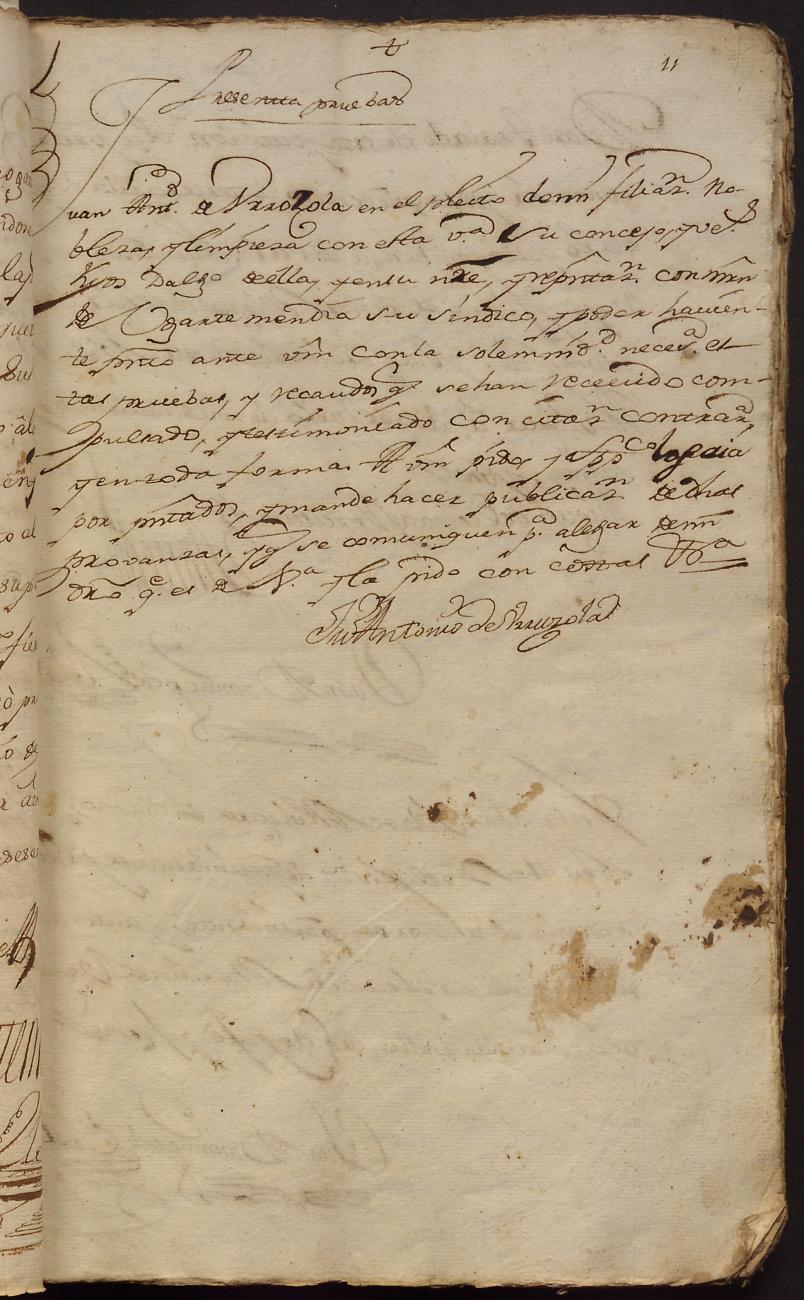 11
Presenta pruebas
Juan Antt.º de Vrrozola en el pleito demi filiaz.n No-
bleza, y limpieza con esta v.a Su concejo, y vez.s
hijos Dalgo de ella, y en su nre, y repntaz.n con mrn
de Vgartemendia su síndico, y poder havien-
te pnto ante vm con la solemnid.d neces.a es-
tas pruebas, y recaudos q se han recevido com-
pulsado, y testimoniado con citaz.n contrar.a,
y en toda forma. A vm pido, y supp.co los haia
por pntados, y mande hacer publicaz.n de dhas
provanzas, y q se comuniquen p.a alegar de mi
dro q.e es de Jus.a y la pido con costas &.a
Ju Antonio de Vrruzola